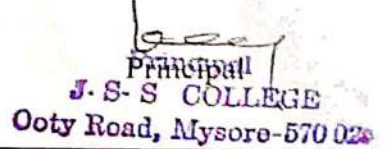 Principal
J. S. S COLLEGE
Ooty Road, Mysore-570 02